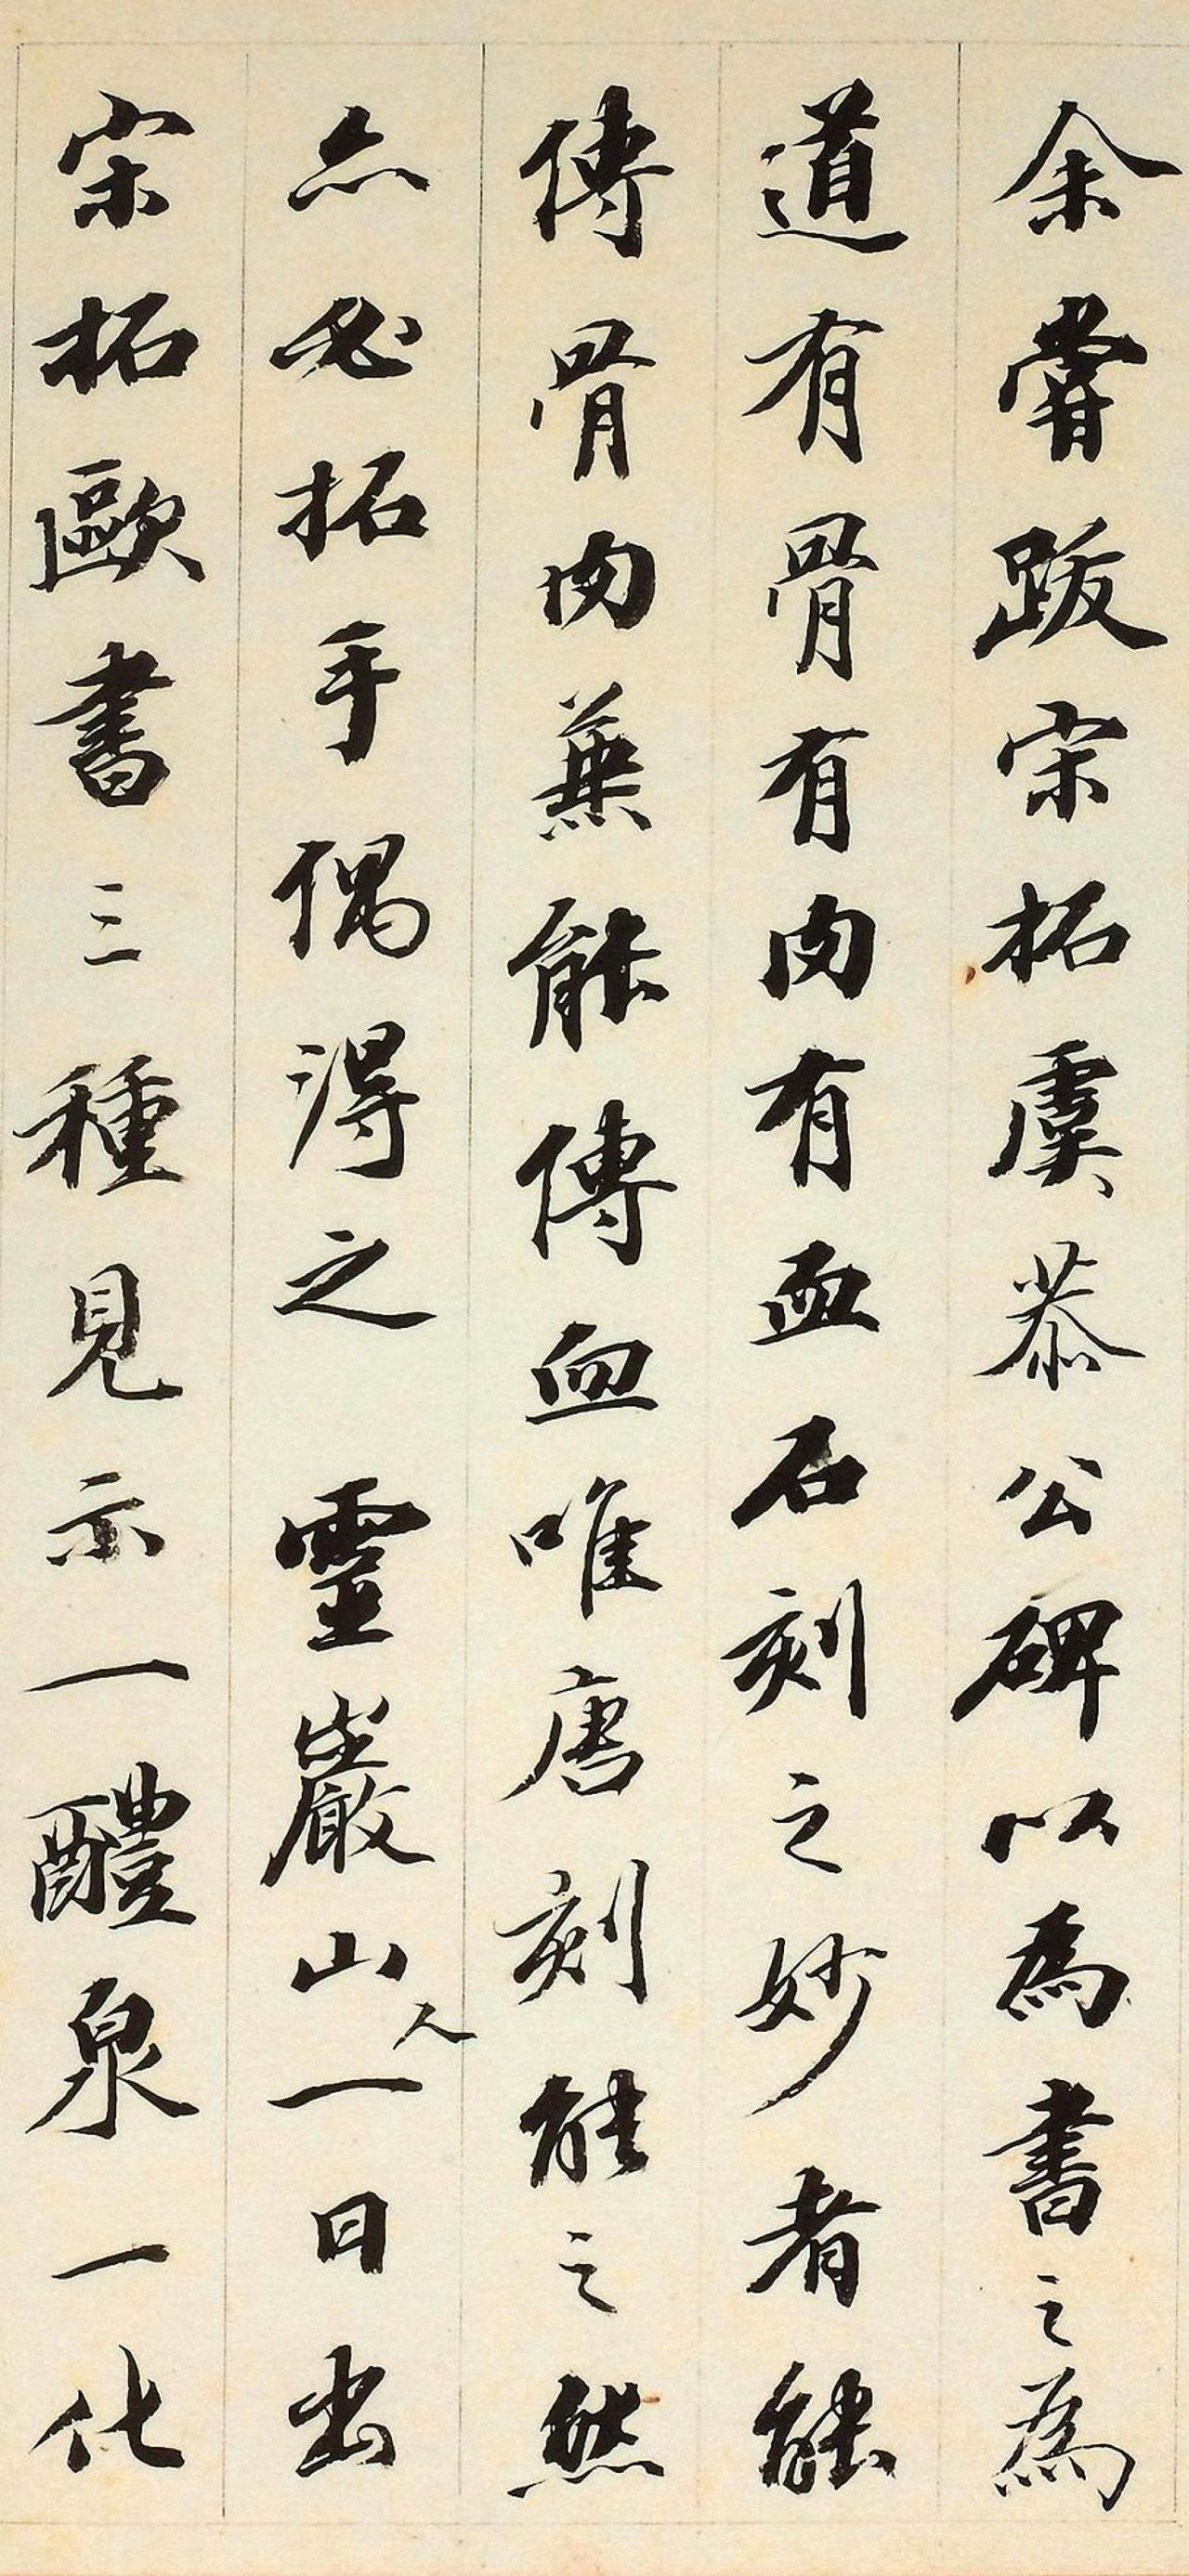 余嘗跋宋拓虞恭公碑以為書之為
道有骨有肉有血石刻之妙者能
傳骨肉無能傳血唯唐刻能之然
亦必拓手偶得之靈巖山人一日出
宋拓歐書三種見示一醴泉一化